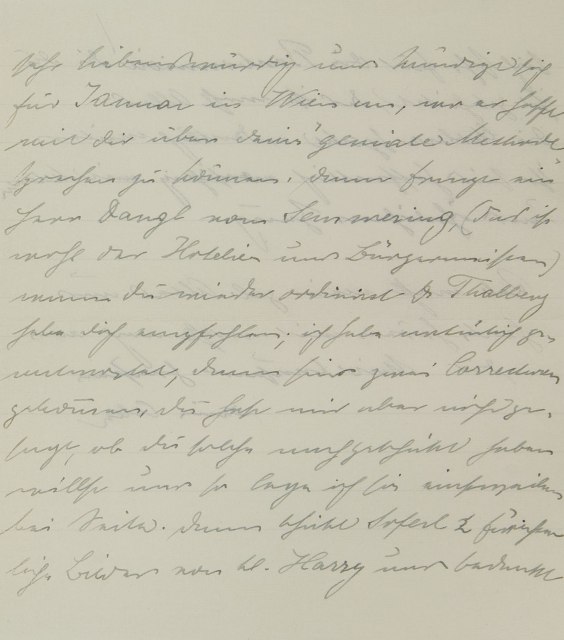 sehr liebenswürdig und kündigt sich
für Januar in Wien an, wo er hofft
mit dir über deine "geniale Methode
sprechen zu können. Dann fragt ein
Herr Dangl vom Semmering, (das ist
wohl der Hotelier und Bürgermeister)
wann du wieder ordinirst Dr Thalberg
habe dich empfohlen; ich habe natürlich ge-
antwortet, dann sind zwei Correcturen
gekommen, du hast mir aber nicht ge-
sagt, ob du solche nachgeschickt haben
willst und so lege ich sie einstweilen
bei Seite. Dann schickt 2
liche Bilder von kl. Harry und bedankt